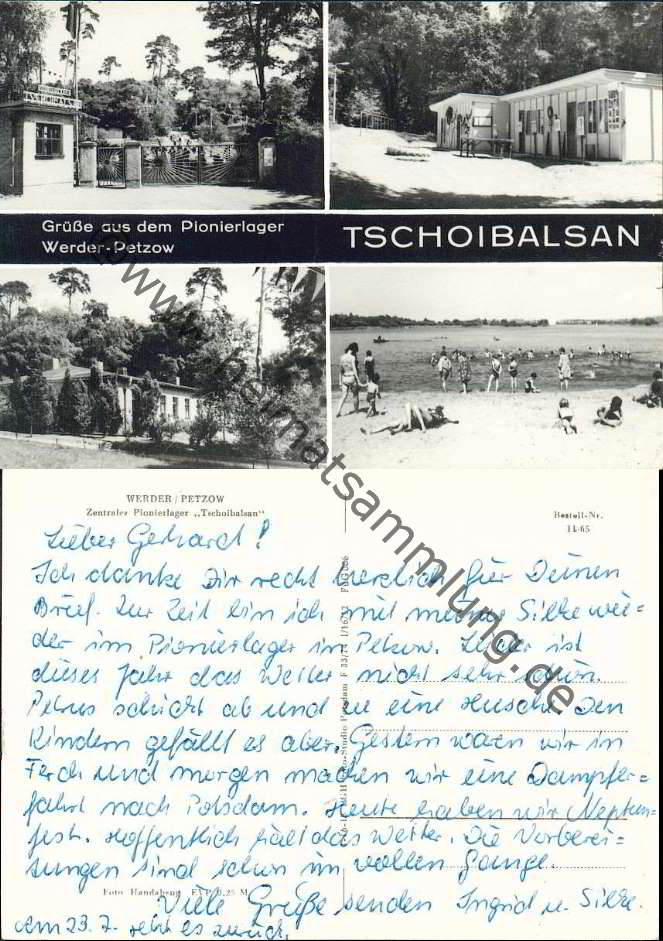 Grüße aus dem Pionierlager
Werder-Petzow
TSCHOIBALSAN
www.heimatsammlung.de
WERDER / PETZOW
Zentrales Pionierlager „Tschoibalsan“
Bestell-Nr.
11-65
Lieber Gerhard!
Ich danke Dir recht herzlich für Deinen
Brief. Zur Zeit bin ich mit meiner Silke wie-
der im Pionierlager in Petzow. Leider ist
dieses Jahr das Wetter nicht sehr schön.
Petrus schickt ab und zu eine Husche. Den
Kindern gefällt es aber. Gestern waren wir in
Ferch und morgen machen wir eine Dampfer=
fahrt nach Potsdam. Heute haben wir Neptun=
fest. Hoffentlich hält das Wetter. Die Vorberei=
tungen sind schon im vollen Gange.
Foto Handabzug EVP 0,25 M
Viele Grüße senden Ingrid u. Silke.
Am 23. 7. geht es zurück.